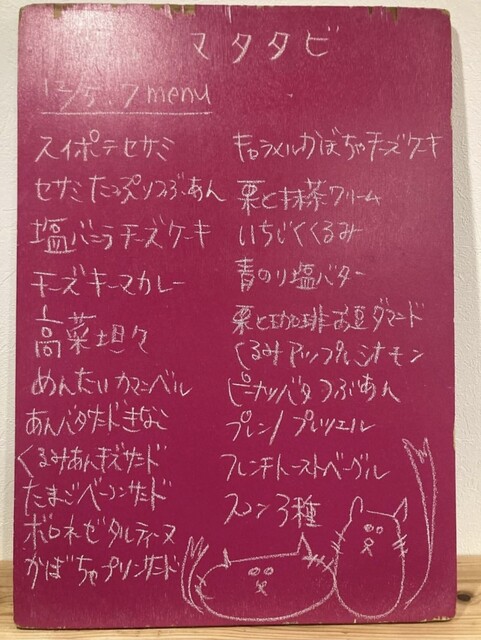 マタタビ
12/5.7 menu
スイポテセサミ
セサミたっぷりつぶあん
塩バニラチーズケーキ
チーズキーマカレー
高菜坦々
めんたいカマンベル
あんバタサンドきなこ
くるみあんチーズサンド
たまごベーコンサンド
ボロネーゼタルティーヌ
かぼちゃプリンサンド
キャラメルかぼちゃチーズケーキ
栗と抹茶クリーム
いちじくくるみ
青のり塩バター
栗と珈琲お豆ダマンド
くるみアップルシナモン
ピーナッツバタつぶあん
プレーン/プレッツェル
フレンチトーストベーグル
スコーン3種